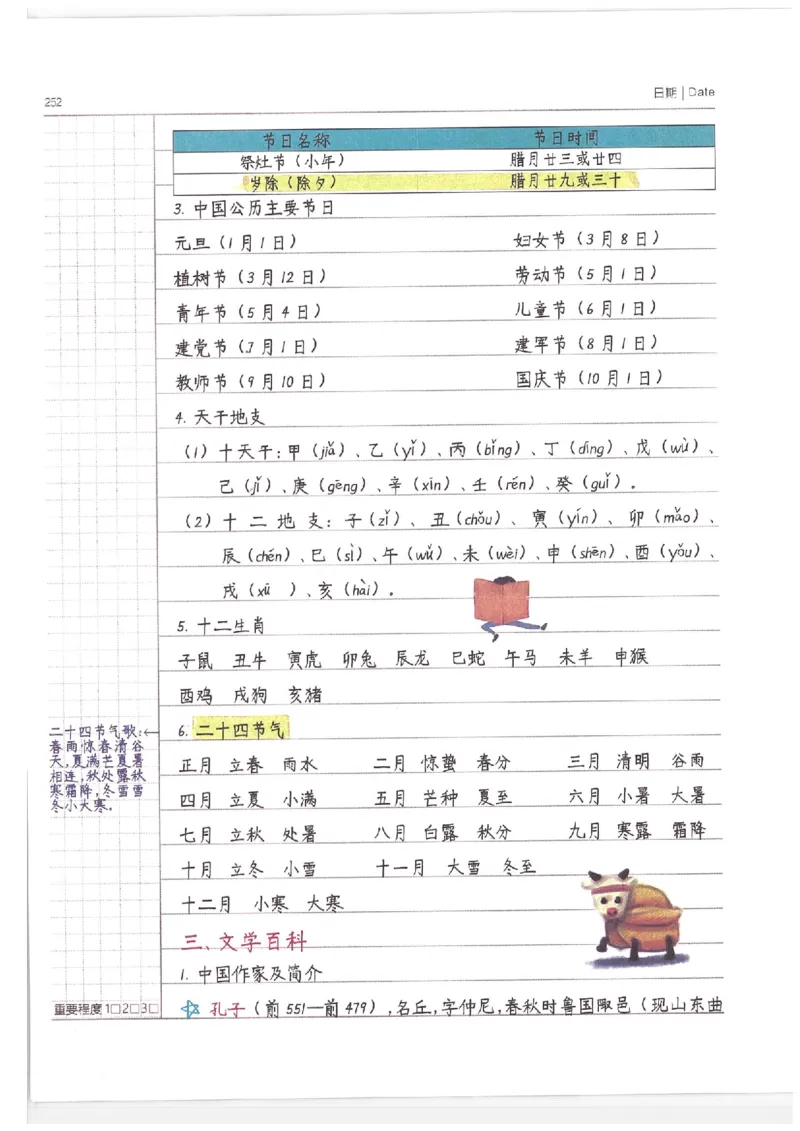 252
日期 | Date
节日名称 节日时间
祭灶节（小年） 腊月廿三或廿四
岁除（除夕） 腊月廿九或三十
3. 中国公历主要节日
元旦（1月1日） 妇女节（3月8日）
植树节（3月12日） 劳动节（5月1日）
青年节（5月4日） 儿童节（6月1日）
建党节（7月1日） 建军节（8月1日）
教师节（9月10日） 国庆节（10月1日）
4. 天干地支
（1）十天干：甲（jiǎ）、乙（yǐ）、丙（bǐng）、丁（dīng）、戊（wù）、
己（jǐ）、庚（gēng）、辛（xīn）、壬（rén）、癸（guǐ）。
（2）十二地支：子（zǐ）、丑（chǒu）、寅（yín）、卯（mǎo）、
辰（chén）、巳（sì）、午（wǔ）、未（wèi）、申（shēn）、酉（yǒu）、
戌（xū ）、亥（hài）。
5. 十二生肖
子鼠 丑牛 寅虎 卯兔 辰龙 巳蛇 午马 未羊 申猴
酉鸡 戌狗 亥猪
6. 二十四节气
二十四节气歌：←
春雨惊春清谷
天，夏满芒夏暑
相连，秋处露秋
寒霜降，冬雪雪
冬小大寒。
正月 立春 雨水 二月 惊蛰 春分 三月 清明 谷雨
四月 立夏 小满 五月 芒种 夏至 六月 小暑 大暑
七月 立秋 处暑 八月 白露 秋分 九月 寒露 霜降
十月 立冬 小雪 十一月 大雪 冬至
十二月 小寒 大寒
三、文学百科
1. 中国作家及简介
孔子（前551—前479），名丘，字仲尼，春秋时鲁国陬邑（现山东曲
重要程度 1□2□3□